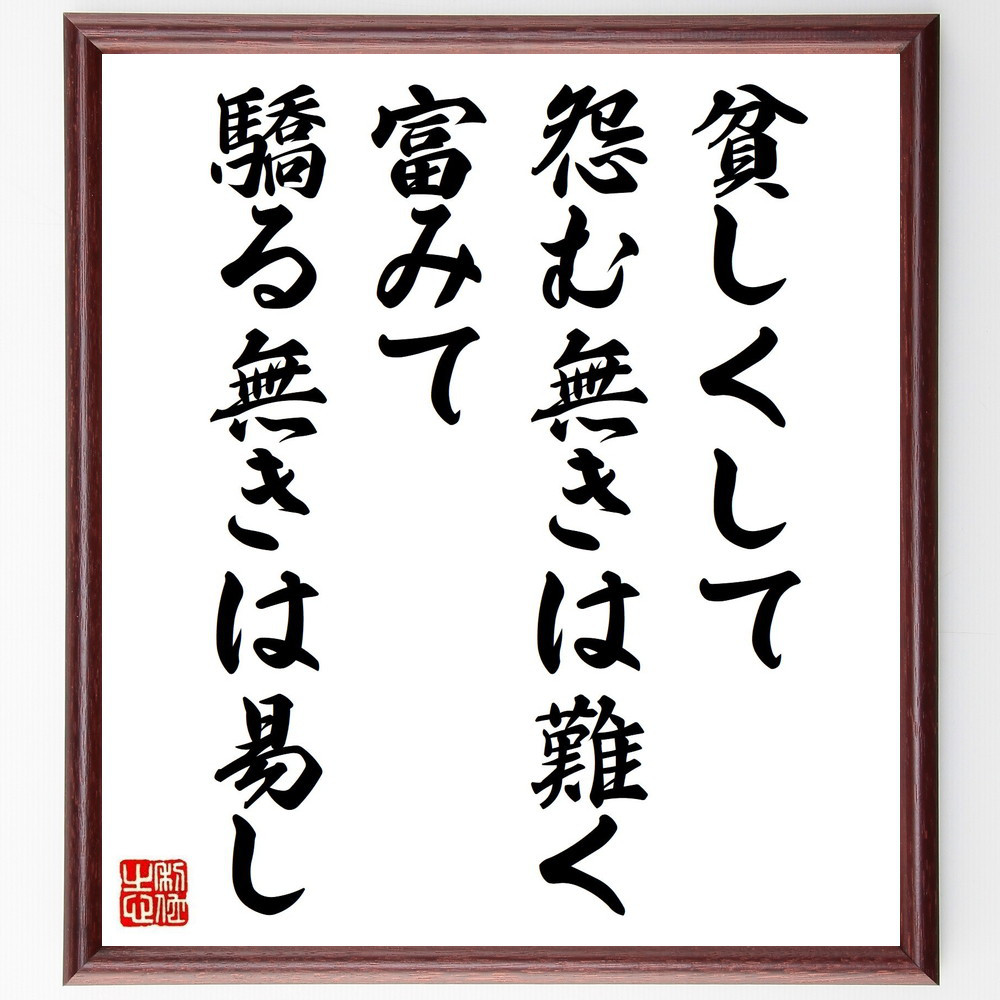 貧しくして
怨む無きは難く
富みて
驕る無きは易し